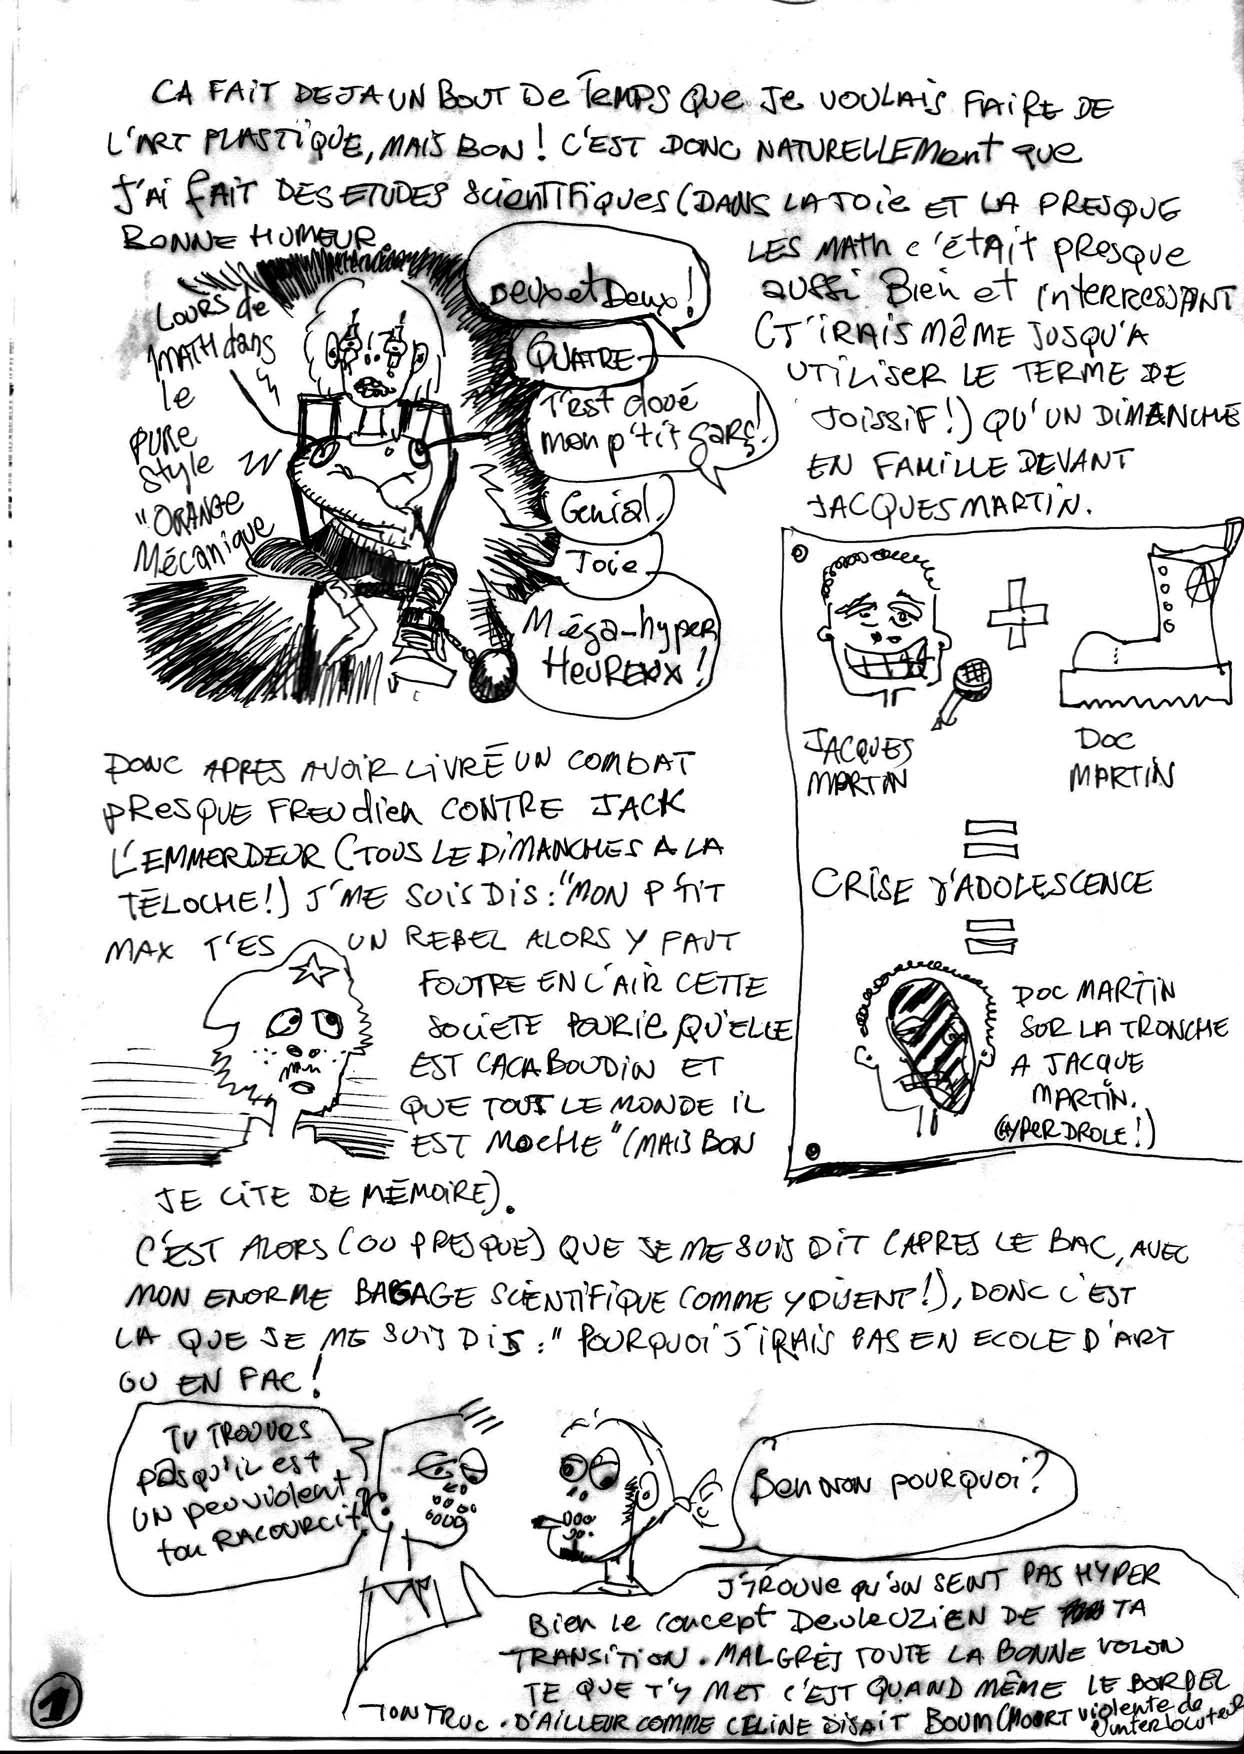 CA FAIT DEJA UN BOUT DE TEMPS QUE JE VOULAIS FAIRE DE
L'ART PLASTIQUE, MAIS BON ! C'EST DONC NATURELLEMENT QUE
J'AI FAIT DES ETUDES SCIENTIFIQUES (DANS LA JOIE ET LA PRESQUE
BONNE HUMEUR.
LES MATH C'ÉTAIT PRESQUE
AUSSI BIEN ET INTERRESSANT
(J'IRAIS MÊME JUSQU'A
UTILISER LE TERME DE
JOISSIF !) QU'UN DIMANCHE
EN FAMILLE DEVANT
JACQUES MARTIN.
COURS de
MATH dans
le
PURE
Style
"ORANGE
Mécanique
Deux et Deux !
QUATRE
T'est doué
mon p'tit gars !
Génial.
Joie
Méga-hyper
HEUREUX !
JACQUES
MARTIN
DOC
MARTIN
CRISE D'ADOLESCENCE
DOC MARTIN
SUR LA TRONCHE
A JACQUE
MARTIN.
(HYPER DROLE !)
DONC APRES AVOIR LIVRÉ UN COMBAT
PRESQUE FREUDIEN CONTRE JACK
L'EMMERDEUR (TOUS LE DIMANCHES A LA
TÉLOCHE !) J'ME SUIS DIS : "MON P'TIT
MAX T'ES UN REBEL ALORS Y FAUT
FOUTRE EN L'AIR CETTE
SOCIETE POURIE, QU'ELLE
EST CACA BOUDIN ET
QUE TOUT LE MONDE IL
EST MOCHE" (MAIS BON
JE CITE DE MÉMOIRE).
C'EST ALORS (OU PRESQUE) QUE JE ME SUIS DIT (APRES LE BAC, AVEC
MON ENORME BAGAGE SCIENTIFIQUE COMME Y DISENT !), DONC C'EST
LA QUE JE ME SUIS DIS : "POURQUOI J'IRAIS PAS EN ECOLE D'ART
OU EN FAC !
TU TROUVES
PAS QU'IL EST
UN PEU VIOLENT
ton RACOURCIT ?
Ben non POURQUOI ?
J'TROUVE QU'ON SENT PAS HYPER
BIEN LE CONCEPT DEULEUZIEN DE TA
TRANSITION. MALGRÈS TOUTE LA BONNE VOLON
TE QUE T'Y MET C'EST QUAND MÊME LE BORDEL
TON TRUC. D'AILLEUR COMME CELINE DISAIT BOUM (MORT violente de
l'interlocuteur
1